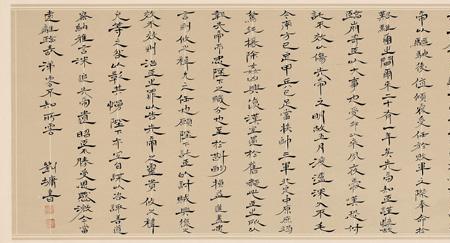 帝以驅馳後值傾覆受任於敗軍之際奉命於
難之間爾來二十有一年矣先帝知臣謹慎故
臨崩寄臣以大事也受命以來夙夜憂歎恐付
託不效以傷先帝之明故五月渡瀘深入不毛
今南方已定甲兵已足當獎帥三軍北定中原庶竭
駑鈍攘除姦凶興復漢室還於舊都此臣所以
報先帝而忠陛下之職分也至於斟酌損益進盡忠
言則攸之禕允之任也願陛下託臣以討賊興復之
效不效則治臣之罪以告先帝之靈責攸之禕
允等之咎以彰其慢陛下亦宜自謀以咨諏善道
察納雅言深追先帝遺詔臣不勝受恩感激今當
遠離臨表涕零不知所云
劉墉書